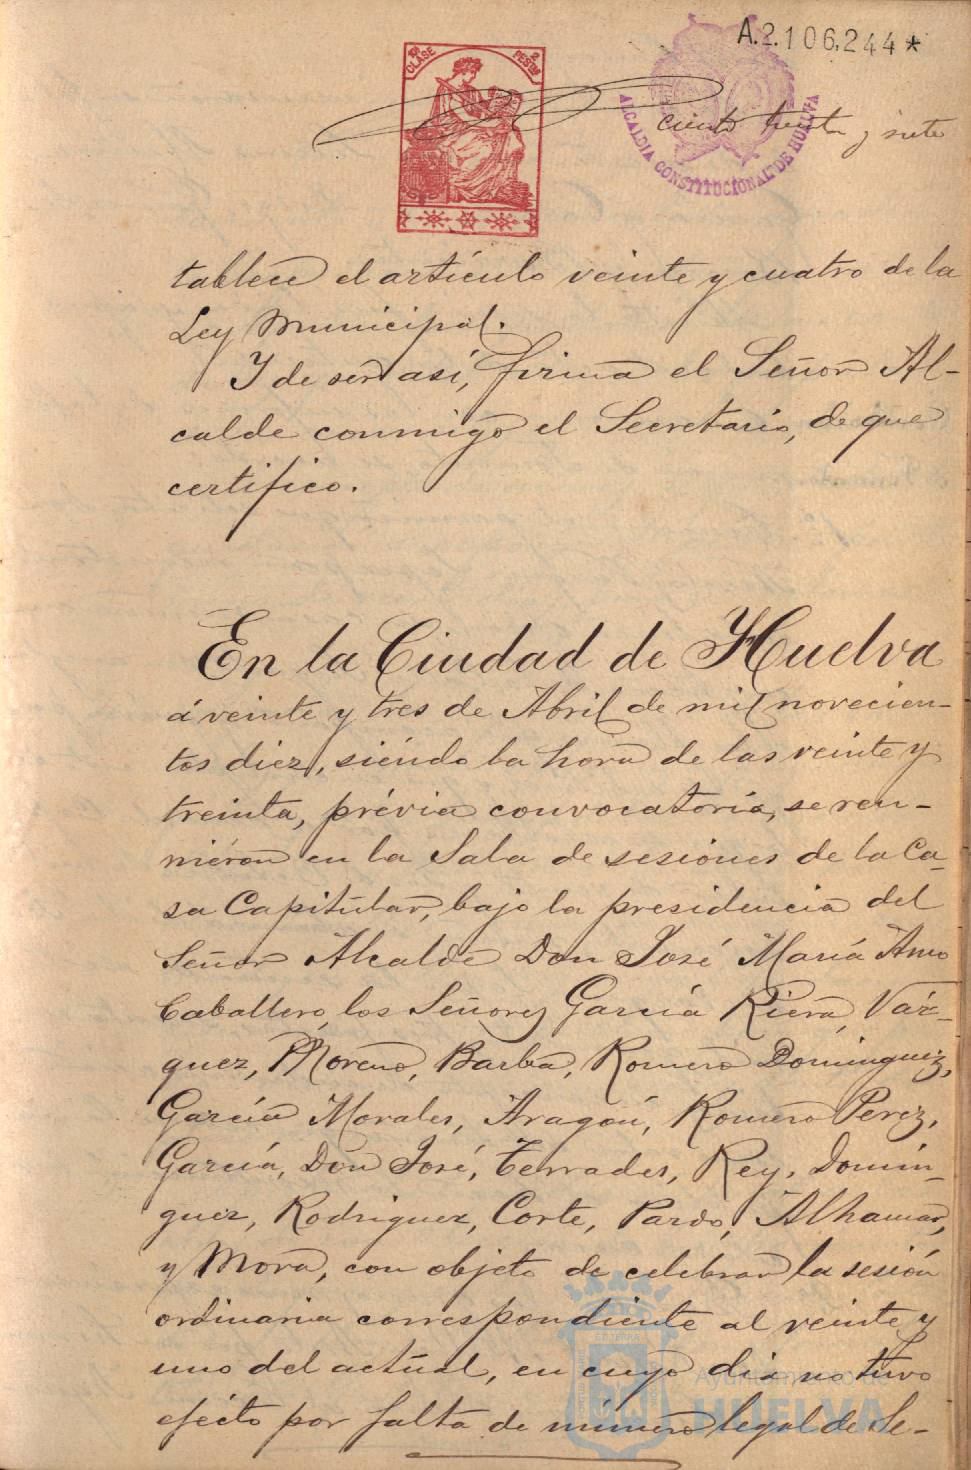 A.2.106,244*
10ª CLASE 2 PESTAS
ALCALDIA CONSTITUCIONAL DE HUELVA
ciento treinta y siete
tablece el artículo veinte y cuatro de la
Ley Municipal.
Y de ser así, firma el Señor Al-
calde conmigo el Secretario, de que
certifico.
En la Ciudad de Huelva
á veinte y tres de Abril de mil novecien-
tos diez, siéndo la hora de las veinte y
treinta, prévia convocatoria, se reu-
niéron en la Sala de sesiones de la Ca-
sa Capitular, bajo la presidencia del
Señor Alcalde Don José María Amo
Caballero, los Señores García Riera, Váz-
quez, Moreno, Barba, Romero Dominguez,
García Morales, Aragón, Romero Perez,
García, Don José, Terrades, Rey, Domín-
guez, Rodriguez, Corte, Pardo, Alhamar,
y Mora, con objeto de celebrar la sesión
ordinaria correspondiente al veinte y
uno del actual, en cuyo dia no tuvo
efécto por falta de número legal de Se-
Ayuntamiento de
HUELVA